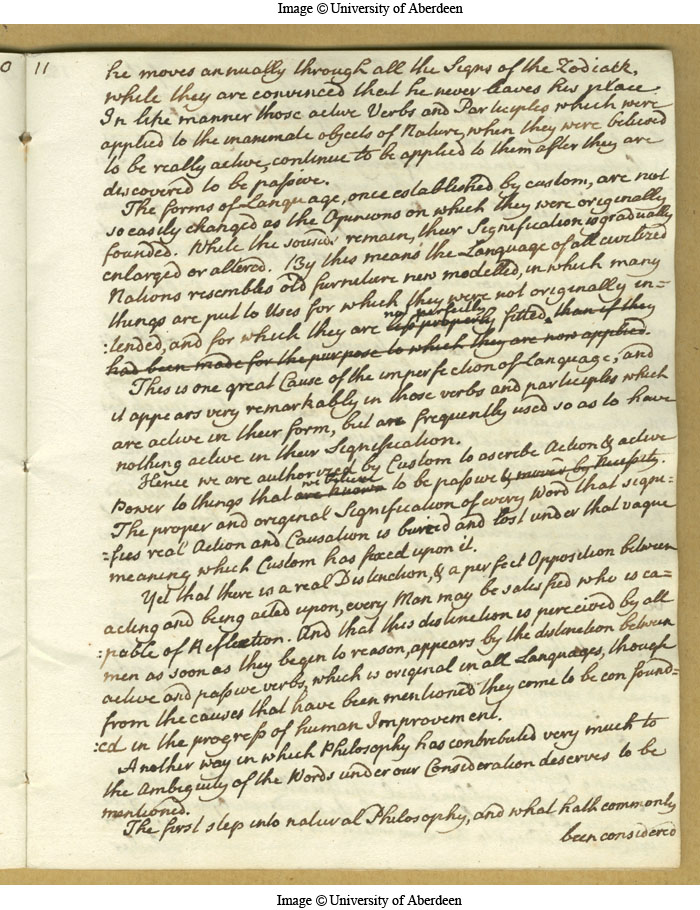 Image © University of Aberdeen
0 11
he moves annually through all the Signs of the Zodiack,
while they are convinced that he never leaves his place.
In like manner those active Verbs and Participles which were
applied to the inanimate objects of Nature, when they were believed
to be really active, continue to be applied to them after they are
discovered to be passive.
The forms of Language, once established by custom, are not
so easily changed as the Opinions on which they were originally
founded. While the sounds remain, their Signification is gradually
enlarged or altered. By this means the Language of all civilized
Nations resembles old furniture new modelled, in which many
things are put to Uses for which they were not originally in=
not perfectly
:tended, and for which they are less properly fitted than if they
had been made for the purpose to which they are now applied.
This is one great Cause of the imperfection of Language, and
it appears very remarkably in those verbs and participles which
are active in their form, but are frequently used so as to have
nothing active in their Signification.
Hence we are authorized by Custom to ascribe Action & active
we believe
Power to things that are known to be passive & mover by Necessity.
The proper and original Signification of every Word that signi=
=fies real Action and Causation is buried and lost under that vague
meaning which Custom has fixed upon it.
Yet that there is a real Distinction, & a perfect Opposition between
acting and being acted upon, every Man may be satisfied who is ca=
:pable of Reflection. And that this distinction is perceived by all
men as soon as they begin to reason, appears by the distinction between
active and passive verbs, which is original in all Languages, though
from the causes that have been mentioned they come to be confound=
:ed in the progress of human Improvement.
Another way in which Philosophy has contributed very much to
the Ambiguity of the Words under our Consideration deserves to be
mentioned.
The first step into natural Philosophy, and what hath commonly
been considered
Image © University of Aberdeen